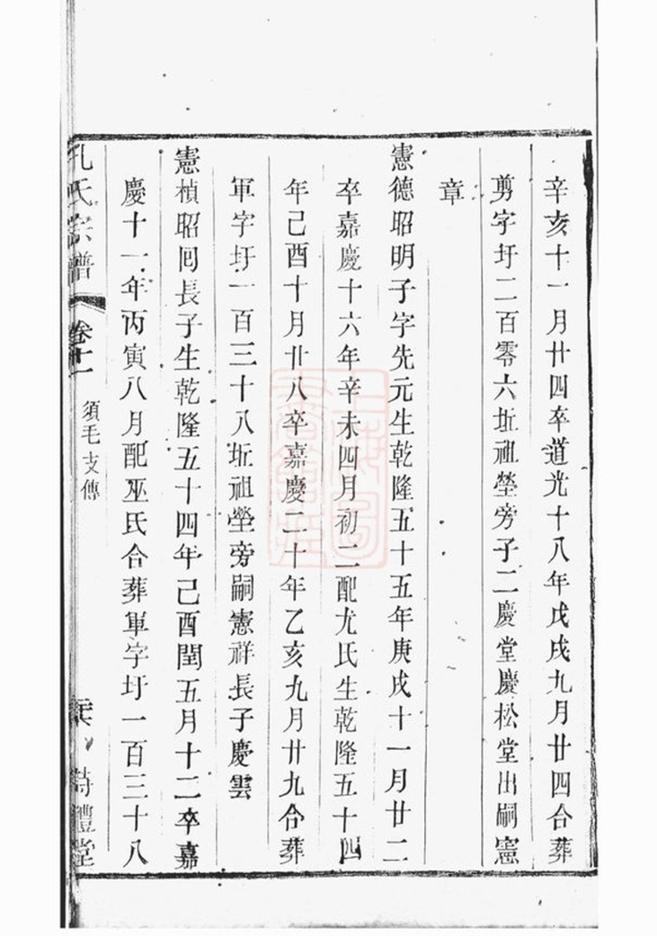 辛亥十一月廿四卒道光十八年戊戌九月廿四合葬
剪字圩二百零六坵祖塋旁子二慶堂慶松堂出嗣憲
章
憲德昭明子字先元生乾隆五十五年庚戌十一月廿二
卒嘉慶十六年辛未四月初二配尤氏生乾隆五十四
年己酉十月廿八卒嘉慶二十年乙亥九月廿九合葬
軍字圩一百三十八坵祖塋旁嗣憲祥長子慶雲
憲楨昭囘長子生乾隆五十四年己酉閏五月十二卒嘉
慶十一年丙寅八月配巫氏合葬軍字圩一百三十八
孔氏宗譜
卷十一
須毛支傳
詩禮堂